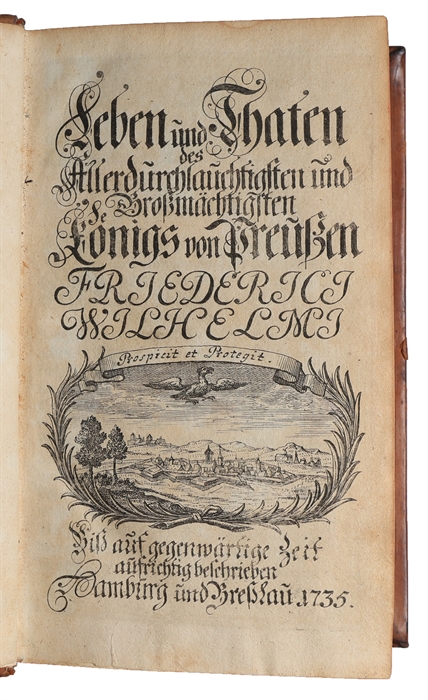 Leben und Thaten
des
Allerdurchlauchtigsten und
Großmächtigsten
Königs von Preußen
FRIEDERICI
WILHELMI
Prospicit et Protegit.
Biß auf gegenwärtige Zeit
aufrichtig beschrieben
Hamburg und Breßlau. 1735.